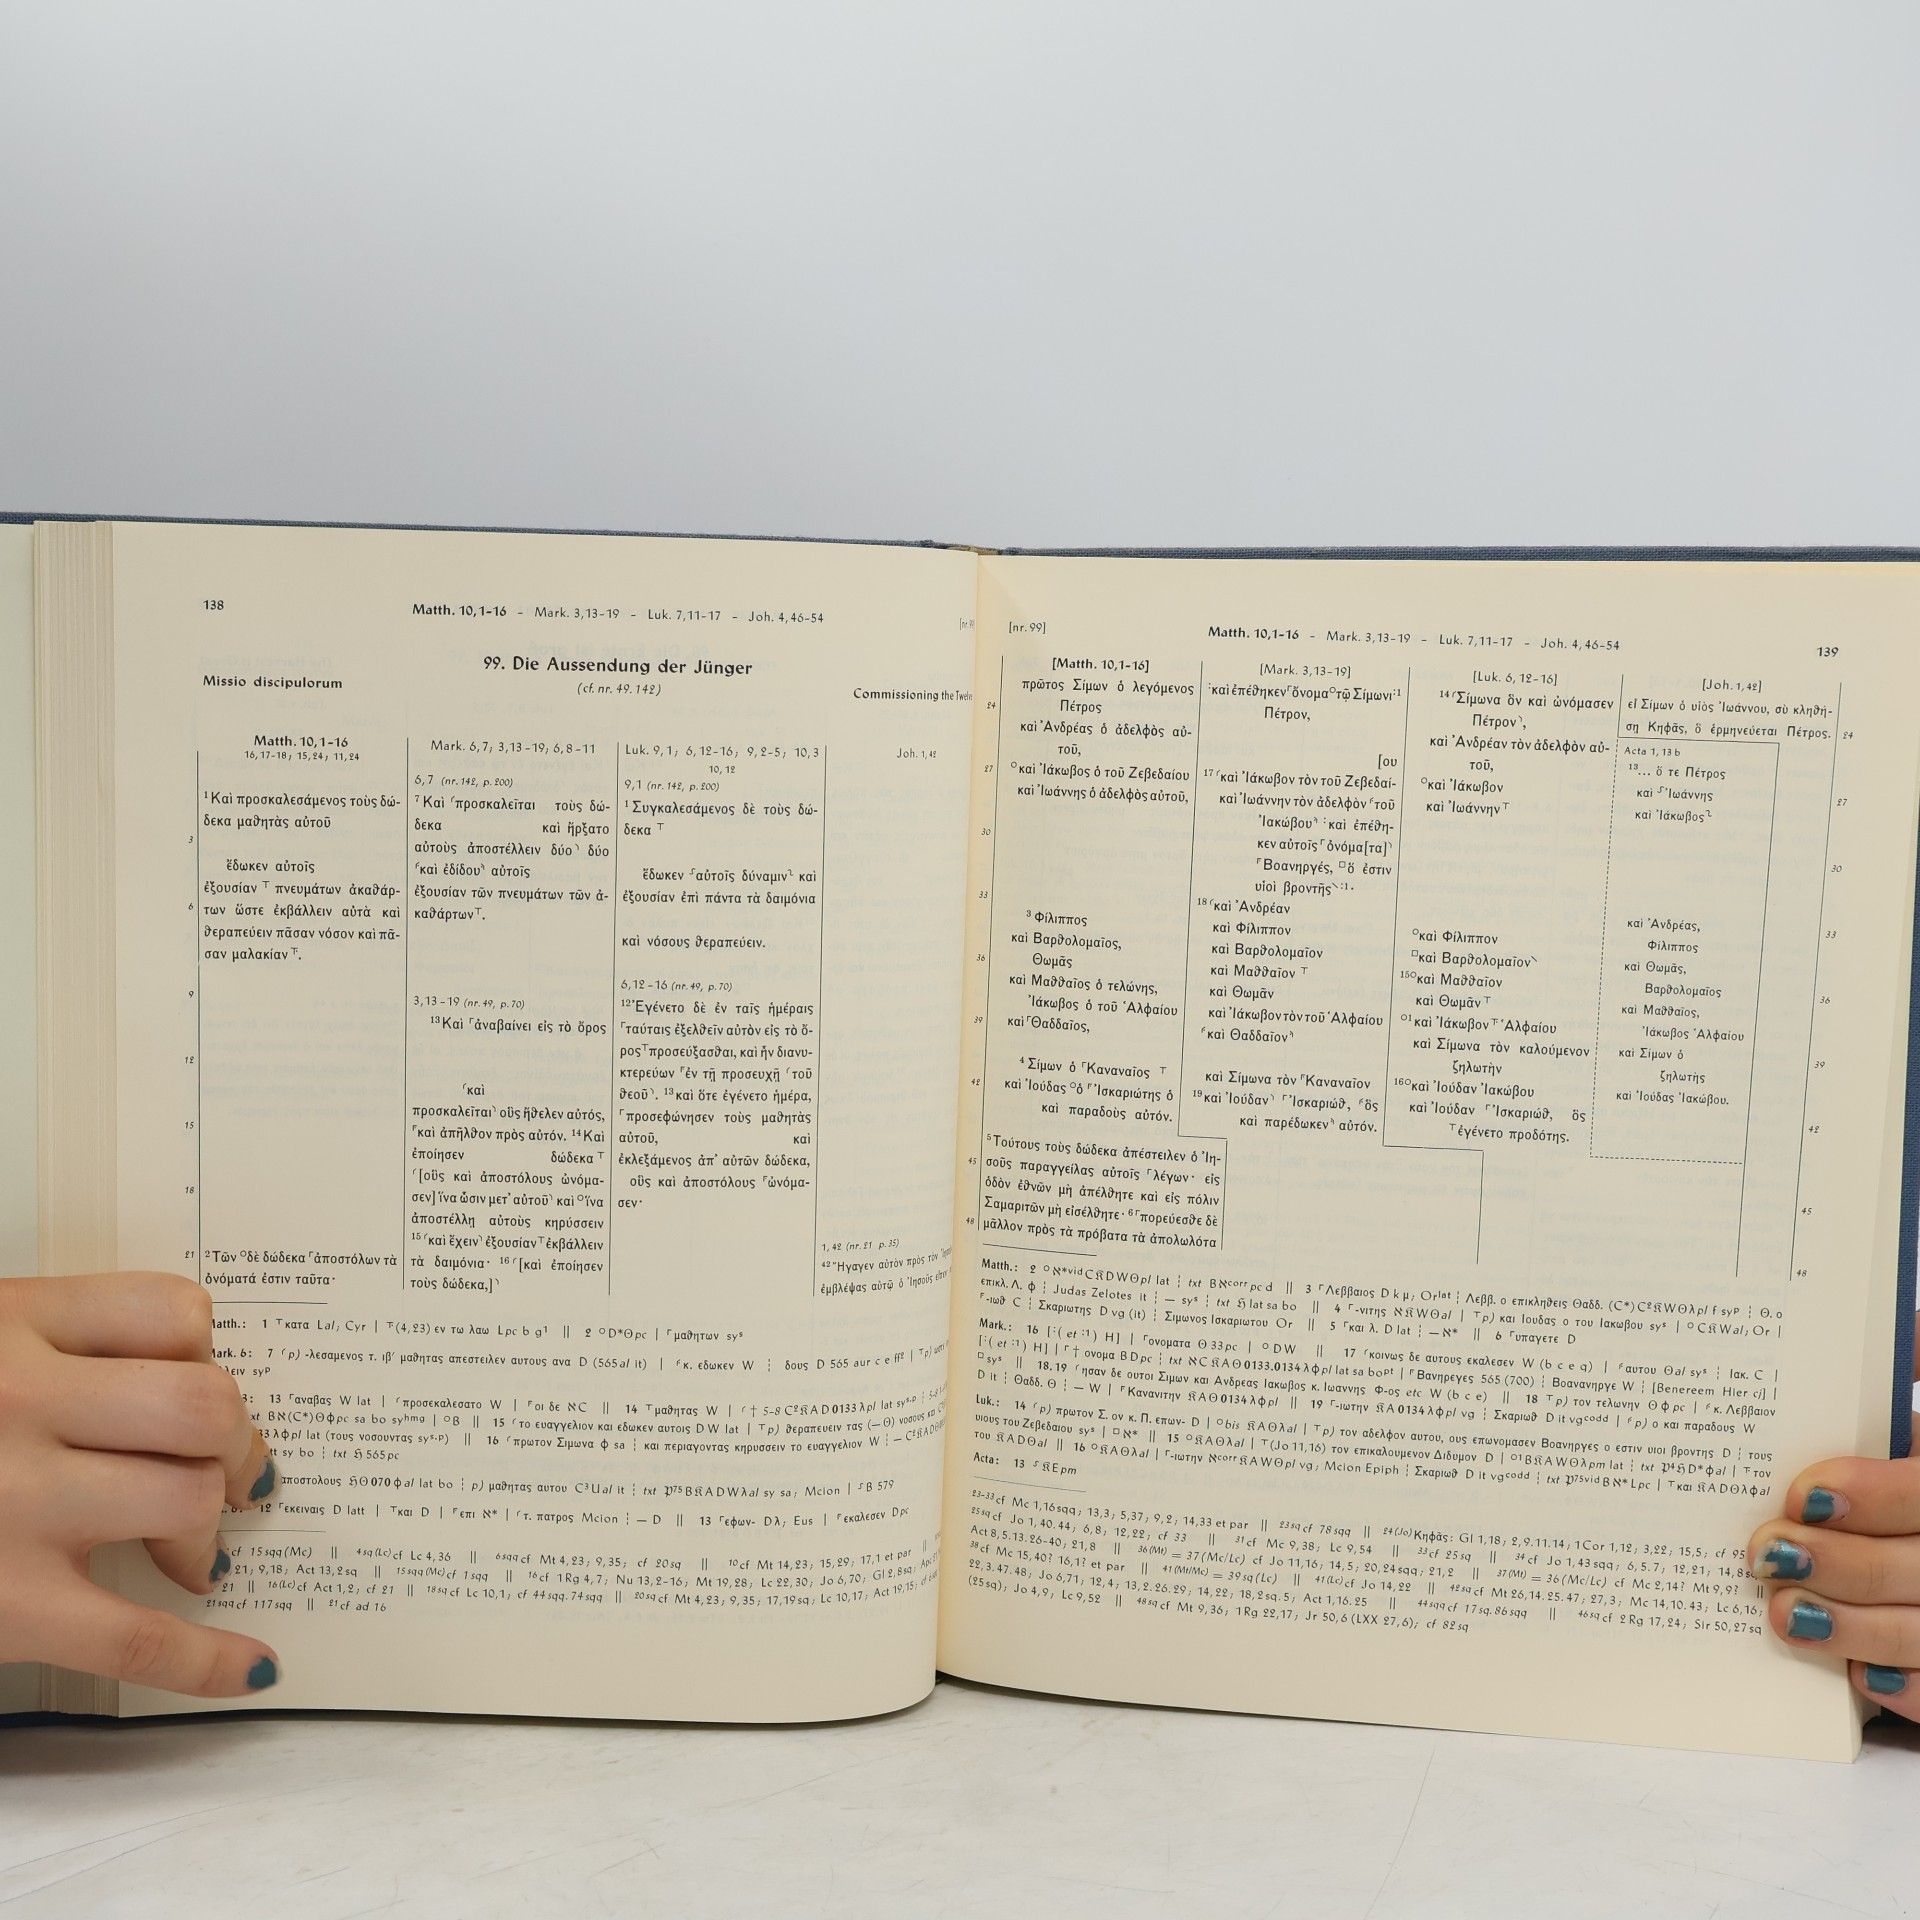 138
Matth. 10,1-16 – Mark. 3,13-19 – Luk. 7,11-17 – Joh. 4,46-54
99. Die Aussendung der Jünger
(cf. nr. 49. 142)
Missio discipulorum
Commissioning the Twelve
Matth. 10,1-16
16,17-18; 15,24; 11,24
1 Καὶ προσκαλεσάμενος τοὺς δώ-
δεκα μαθητὰς αὐτοῦ
3
ἔδωκεν αὐτοῖς
ἐξουσίαν ⸆ πνευμάτων ἀκαθάρ-
6 των ὥστε ἐκβάλλειν αὐτὰ καὶ
θεραπεύειν πᾶσαν νόσον καὶ πᾶ-
σαν μαλακίαν ⸆.
9
12
15
18
21 2 Τῶν ⸰δὲ δώδεκα ⸀ἀποστόλων τὰ
ὀνόματά ἐστιν ταῦτα·
Mark. 6,7; 3,13-19; 6,8-11
6,7 (nr. 142, p. 200)
7 Καὶ ⸂προσκαλεῖται τοὺς δώ-
δεκα καὶ ἤρξατο
αὐτοὺς ἀποστέλλειν δύο⸃ δύο
⸂καὶ ἐδίδου⸃ αὐτοῖς
ἐξουσίαν τῶν πνευμάτων τῶν ἀ-
καθάρτων⸆.
3,13-19 (nr. 49, p. 70)
13 Καὶ ⸀ἀναβαίνει εἰς τὸ ὄρος
⸂καὶ
προσκαλεῖται⸃ οὓς ἤθελεν αὐτός,
⸀καὶ ἀπῆλθον πρὸς αὐτόν. 14 Καὶ
ἐποίησεν δώδεκα ⸆
⸂[οὓς καὶ ἀποστόλους ὠνόμα-
σεν] ἵνα ὦσιν μετ᾽ αὐτοῦ⸃ καὶ ⸰ἵνα
ἀποστέλλῃ αὐτοὺς κηρύσσειν
15 ⸂καὶ ἔχειν⸃ ἐξουσίαν ⸆ ἐκβάλλειν
τὰ δαιμόνια· 16 ⸂[καὶ ἐποίησεν
τοὺς δώδεκα,]⸃
Luk. 9,1; 6,12-16; 9,2-5; 10,3
10,12
9,1 (nr. 142, p. 200)
1 Συγκαλεσάμενος δὲ τοὺς δώ-
δεκα ⸆
ἔδωκεν ⸉αὐτοῖς δύναμιν⸊ καὶ
ἐξουσίαν ἐπὶ πάντα τὰ δαιμόνια
καὶ νόσους θεραπεύειν.
6,12-16 (nr. 49, p. 70)
12 Ἐγένετο δὲ ἐν ταῖς ἡμέραις
⸀ταύταις ἐξελθεῖν αὐτὸν εἰς τὸ ὄ-
ρος ⸆ προσεύξασθαι, καὶ ἦν διανυ-
κτερεύων ⸀ἐν τῇ προσευχῇ ⸂τοῦ
θεοῦ⸃. 13 καὶ ὅτε ἐγένετο ἡμέρα,
⸀προσεφώνησεν τοὺς μαθητὰς
αὐτοῦ, καὶ
ἐκλεξάμενος ἀπ᾽ αὐτῶν δώδεκα,
οὓς καὶ ἀποστόλους ⸀ὠνόμα-
σεν·
Joh. 1,42
1,42 (nr. 21 p. 35)
42 Ἤγαγεν αὐτὸν πρὸς τὸν
ἐμβλέψας αὐτῷ ὁ Ἰησοῦς εἶπεν
1 ⸆κατα Lal; Cyr | ⸆(4,23) εν τω λαω Lpc b g1 || 2 ⸰D*Θpc | ⸀μαθητων sys
Mark. 6: 7 ⸂p) -λεσαμενος τ. ιβ′ μαθητας απεστειλεν αυτους ανα D (565al it) | ⸂κ. εδωκεν W ¦ δους D 565 aur c e ff2
13 ⸀αναβας W lat | ⸂προσεκαλεσατο W | ⸀οι δε ℵC || 14 ⸆μαθητας W
15 ⸂το ευαγγελιον και εδωκεν αυτοις D W lat | ⸆p) θεραπευειν τας (—Θ) νοσους
16 ⸂πρωτον Σιμωνα φ sa ¦ και περιαγοντας κηρυσσειν το ευαγγελιον W
tt sy bo ¦ txt ℌ 565pc
αποστολους ℌΘ070φal lat bo ¦ p) μαθητας αυτου C3Ual it ¦ txt 𝔓75B𝔎ADWλal sy sa; Mcion | ⸉B 579
12 ⸀εκειναις D latt | ⸆και D | ⸀επι ℵ* | ⸂τ. πατρος Mcion ¦ — D || 13 ⸀εφων- Dλ; Eus | ⸀εκαλεσεν Dpc
cf 15sqq(Mc) || 4sq(Lc)cf Lc 4,36 || 6sqqcf Mt 4,23; 9,35; cf 20sq || 10cf Mt 14,23; 15,29; 17,1 et par
21; 9,18; Act 13,2sq || 15sqq(Mc)cf 1sqq || 16cf 1Rg 4,7; Nu 13,2-16; Mt 19,28; Lc 22,30; Jo 6,70; Gl 2,8sq;
21 || 16(Lc)cf Act 1,2; cf 21 || 18sqcf Lc 10,1; cf 44sqq.74sqq || 20sqcf Mt 4,23; 9,35; 17,19sq; Lc 10,17; Act 19,15;
21sqqcf 117sqq || 21cf ad 16
[nr. 99]
Matth. 10,1-16 – Mark. 3,13-19 – Luk. 7,11-17 – Joh. 4,46-54
139
[Matth. 10,1-16]
πρῶτος Σίμων ὁ λεγόμενος
24 Πέτρος
καὶ Ἀνδρέας ὁ ἀδελφὸς αὐ-
τοῦ,
27 ⸰καὶ Ἰάκωβος ὁ τοῦ Ζεβεδαίου
καὶ Ἰωάννης ὁ ἀδελφὸς αὐτοῦ,
30
33
3 Φίλιππος
καὶ Βαρθολομαῖος,
36 Θωμᾶς
καὶ Μαθθαῖος ὁ τελώνης,
Ἰάκωβος ὁ τοῦ Ἁλφαίου
39 καὶ ⸀Θαδδαῖος,
4 Σίμων ὁ ⸀Καναναῖος ⸆
42 καὶ Ἰούδας ⸰ὁ ⸀Ἰσκαριώτης ὁ
καὶ παραδοὺς αὐτόν.
5 Τούτους τοὺς δώδεκα ἀπέστειλεν ὁ Ἰη-
45 σοῦς παραγγείλας αὐτοῖς ⸀λέγων· εἰς
ὁδὸν ἐθνῶν μὴ ἀπέλθητε καὶ εἰς πόλιν
Σαμαριτῶν μὴ εἰσέλθητε· 6 ⸀πορεύεσθε δὲ
48 μᾶλλον πρὸς τὰ πρόβατα τὰ ἀπολωλότα
[Mark. 3,13-19]
⸬καὶ ἐπέθηκεν ⸀ὄνομα ⸰τῷ Σίμωνι⸬1
Πέτρον,
[ου
17 ⸂καὶ Ἰάκωβον τὸν τοῦ Ζεβεδαί-
καὶ Ἰωάννην τὸν ἀδελφὸν ⸂τοῦ
Ἰακώβου⸃ ⸬καὶ ἐπέθη-
κεν αὐτοῖς ⸀ὀνόμα[τα]⸃
⸀Βοανηργές, ⸋ὅ ἐστιν
υἱοὶ βροντῆς⸌⸬1·
18 ⸂καὶ Ἀνδρέαν
καὶ Φίλιππον
καὶ Βαρθολομαῖον
καὶ Μαθθαῖον ⸆
καὶ Θωμᾶν
καὶ Ἰάκωβον τὸν τοῦ Ἁλφαίου
⸂καὶ Θαδδαῖον⸃
καὶ Σίμωνα τὸν ⸀Καναναῖον
19 καὶ Ἰούδαν⸃ ⸀Ἰσκαριώθ, ⸂ὃς
καὶ παρέδωκεν⸃ αὐτόν.
[Luk. 6, 12-16]
14 ⸂Σίμωνα ὃν καὶ ὠνόμασεν
Πέτρον⸃,
καὶ Ἀνδρέαν τὸν ἀδελφὸν αὐ-
τοῦ,
⸰καὶ Ἰάκωβον
καὶ Ἰωάννην ⸆
⸰καὶ Φίλιππον
⸋καὶ Βαρθολομαῖον⸌
15 ⸰καὶ Μαθθαῖον
καὶ Θωμᾶν ⸆
⸰1καὶ Ἰάκωβον ⸆ Ἁλφαίου
καὶ Σίμωνα τὸν καλούμενον
ζηλωτὴν
16 ⸰καὶ Ἰούδαν Ἰακώβου
καὶ Ἰούδαν ⸀Ἰσκαριώθ, ὃς
⸆ἐγένετο προδότης.
[Joh. 1,42]
εἶ Σίμων ὁ υἱὸς Ἰωάννου, σὺ κληθή-
ση Κηφᾶς, ὃ ἑρμηνεύεται Πέτρος. 24
Acta 1, 13 b
13 ... ὅ τε Πέτρος
καὶ ⸉Ἰωάννης
27
καὶ Ἰάκωβος⸊
30
καὶ Ἀνδρέας,
33
Φίλιππος
καὶ Θωμᾶς,
Βαρθολομαῖος
36
καὶ Μαθθαῖος,
Ἰάκωβος Ἁλφαίου
καὶ Σίμων ὁ
39
ζηλωτὴς
καὶ Ἰούδας Ἰακώβου.
42
45
48
Matth.: 2 ⸰ℵ*vidC𝔎DWΘpl lat ¦ txt Bℵcorrpc d || 3 ⸀Λεββαιος D k μ; Orlat ¦ Λεββ. ο επικληθεις Θαδδ. (C*)C2𝔎WΘλpl f syp ¦ Θ. ο
επικλ. Λ. φ ¦ Judas Zelotes it ¦ — sys ¦ txt ℌ lat sa bo || 4 ⸀-νιτης ℵ𝔎WΘal | ⸆p) και Ιουδας ο του Ιακωβου sys | ⸰C𝔎Wal; Or |
⸀-ιωθ C ¦ Σκαριωτης D vg (it) ¦ Σιμωνος Ισκαριωτου Or || 5 ⸀και λ. D lat ¦ — ℵ* || 6 ⸀υπαγετε D
Mark.: 16 [⸬( et ⸬1) H] | ⸀ονοματα Θ 33pc | ⸰DW || 17 ⸂κοινως δε αυτους εκαλεσεν W (b c e q) | ⸂αυτου Θal sys ¦ Ιακ. C |
[⸬( et ⸬1) H] | ⸀† ονομα BDpc ¦ txt ℵC𝔎AΘ0133.0134λφpl lat sa bopt | ⸀Βανηρεγες 565 (700) ¦ Βοανανηργε W ¦ [Benereem Hier cj] |
⸋sys || 18.19 ⸂ησαν δε ουτοι Σιμων και Ανδρεας Ιακωβος κ. Ιωαννης Φ-ος etc W (b c e) || 18 ⸆p) τον τελωνην Θφpc | ⸂κ. Λεββαιον
D it ¦ Θαδδ. Θ ¦ — W | ⸀Κανανιτην 𝔎AΘ0134λφpl || 19 ⸀-ιωτην 𝔎A0134λφpl vg ¦ Σκαριωθ D it vgcodd | ⸂p) ο και παραδους W
Luk.: 14 ⸂p) πρωτον Σ. ον κ. Π. επων- D | ⸰bis 𝔎AΘλal | ⸆p) τον αδελφον αυτου, ους επωνομασεν Βοανηργες ο εστιν υιοι βροντης D ¦ τους
υιους του Ζεβεδαιου sys | ⸋ℵ* || 15 ⸰𝔎AΘλal | ⸆(Jo 11,16) τον επικαλουμενον Διδυμον D | ⸰1B𝔎AWΘλpm lat ¦ txt 𝔓4ℌD*φal | ⸆τον
του 𝔎ADΘal || 16 ⸰𝔎AΘλal | ⸀-ιωτην ℵcorr𝔎AWΘpl vg; Mcion Epiph ¦ Σκαριωθ D it vgcodd ¦ txt 𝔓75vidBℵ*Lpc | ⸆και 𝔎ADΘλφal
Acta: 13 ⸉𝔎Epm
23-33cf Mc 1,16sqq; 13,3; 5,37; 9,2; 14,33 et par || 23sqcf 78sqq || 24(Jo)Κηφᾶς: Gl 1,18; 2,9.11.14; 1Cor 1,12; 3,22; 15,5; cf 95
25sqcf Jo 1,40.44; 6,8; 12,22; cf 33 || 31cf Mc 9,38; Lc 9,54 || 33cf 25sq || 34cf Jo 1,43sqq; 6,5.7; 12,21; 14,8sq
Act 8,5.13.26-40; 21,8 || 36(Mt) = 37(Mc/Lc) cf Jo 11,16; 14,5; 20,24sqq; 21,2 || 37(Mt) = 36(Mc/Lc) cf Mc 2,14? Mt 9,9? ||
38cf Mc 15,40? 16,1? et par || 41(Mt/Mc) = 39sq(Lc) || 41(Lc)cf Jo 14,22 || 42sqcf Mt 26,14.25.47; 27,3; Mc 14,10.43; Lc 6,16;
22,3.47.48; Jo 6,71; 12,4; 13,2.26.29; 14,22; 18,2sq.5; Act 1,16.25 || 44sqqcf 17sq.86sqq || 46sqcf 2Rg 17,24; Sir 50,27sq
(25sq); Jo 4,9; Lc 9,52 || 48sqcf Mt 9,36; 1Rg 22,17; Jr 50,6 (LXX 27,6); cf 82sq